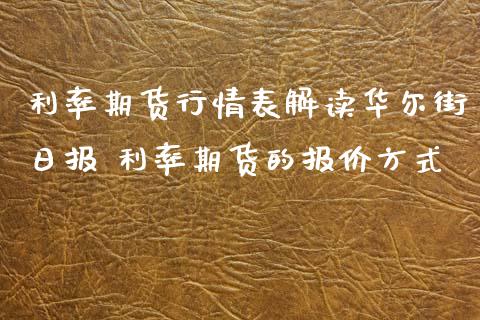 利率期货行情表解读华尔街
日报 利率期货的报价方式